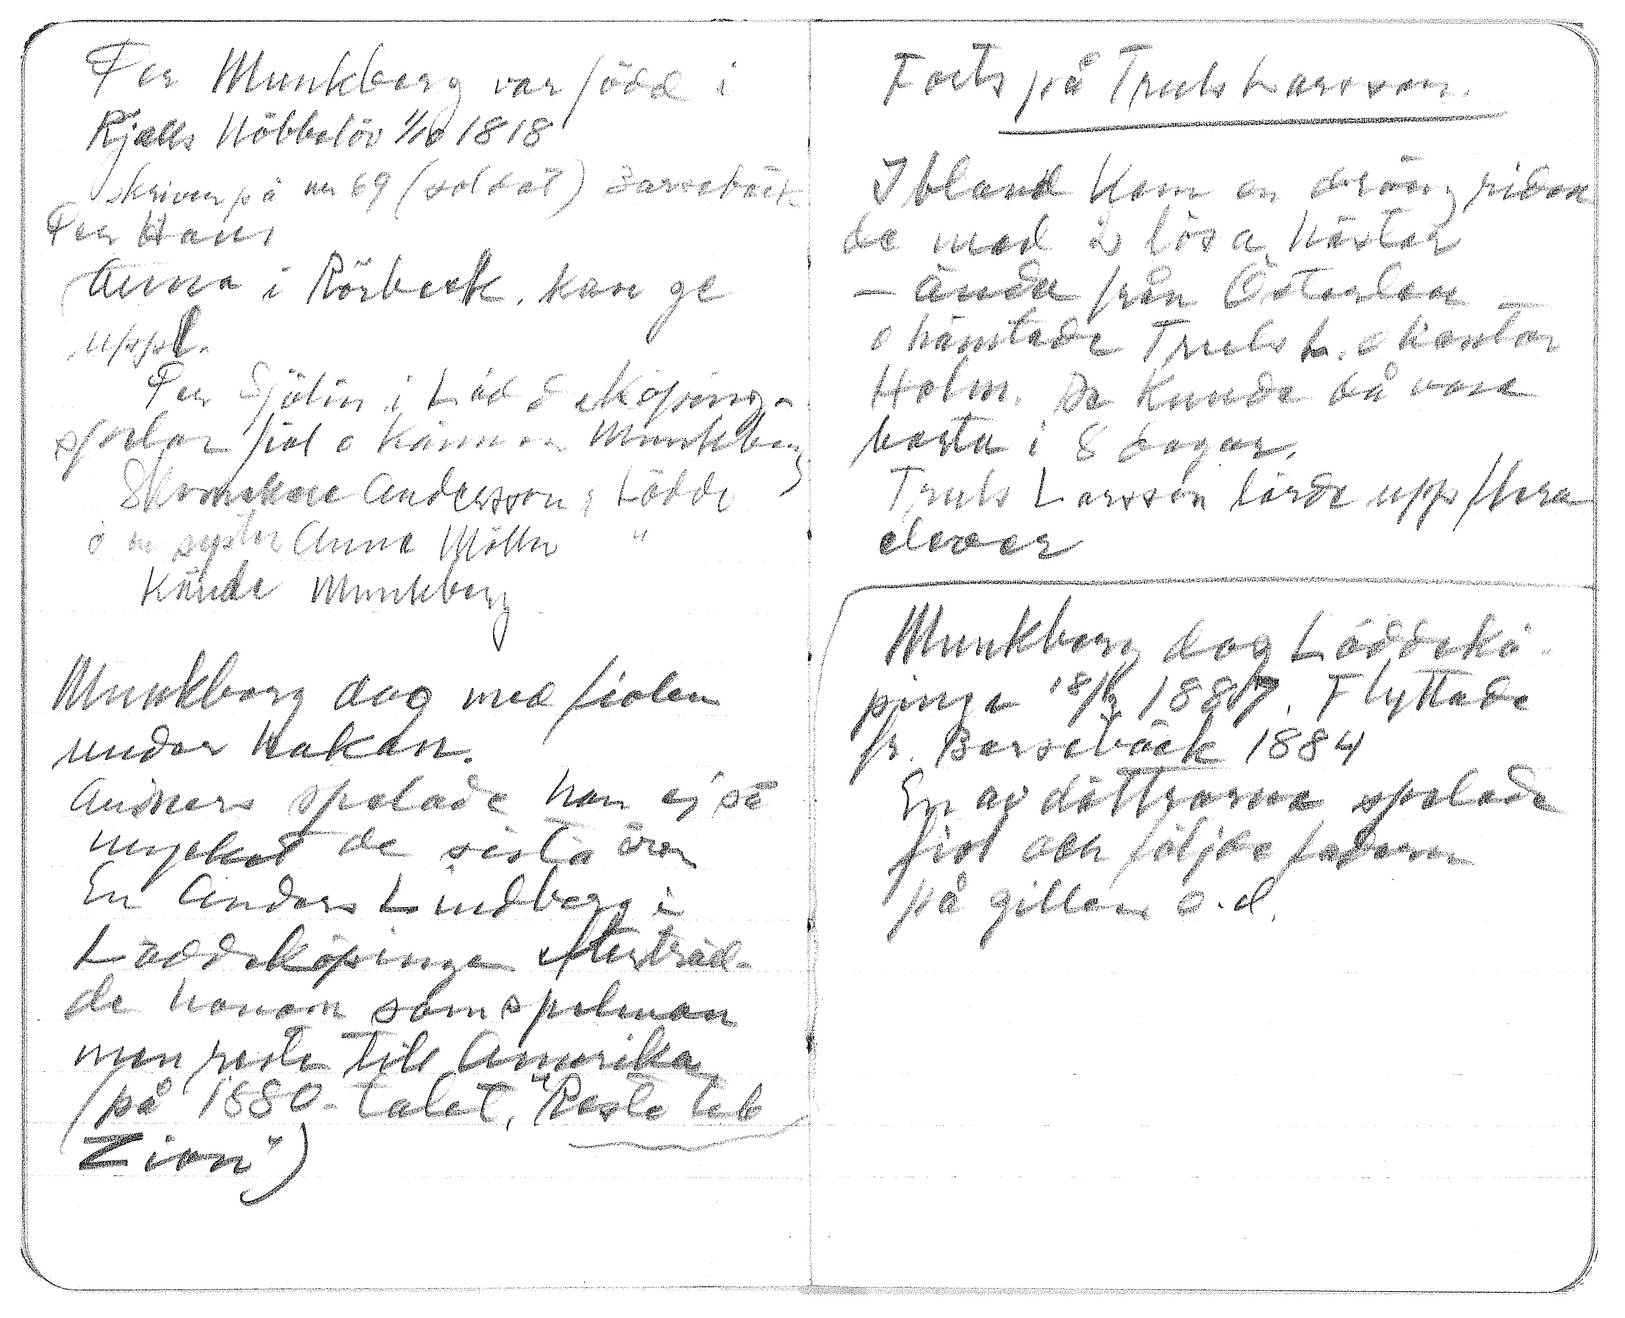 Per Munkberg var född i
Kjells Nöbbelöv 1/10 1818
skriven på nr 69 (soldat) Barsebäck
Per Hans
Anna i Rörbeck. kan ge
uppl.
Per Sjölin i Löddeköpinge
spelar fiol o känner Munkberg
Skomakare Andersson i Lödde
o en syster Anna Möller "
Kände Munkberg
Munkberg dog med fiolen
under hakan.
Annars spelade han ej så
mycket de sista åren
En Anders Lindberg i
Löddeköpinge efterträd-
de honom som spelman
men reste till Amerika
(på 1880-talet. "Reste till
Zion")
Forts på Truls Larsson.
Ibland kom en dräng ridan
de med 2 lösa hästar
– ända från Österlen –
o hämtade Truls L. o kantor
Holm. De kunde då vara
borta i 8 dagar.
Truls Larsson lärde upp flera
elever
Munkberg dog Löddekö-
pinge 1887. Flyttade
fr. Barsebäck 1884
En av döttrarna spelade
fiol och följde fadern
på gillen o.d.